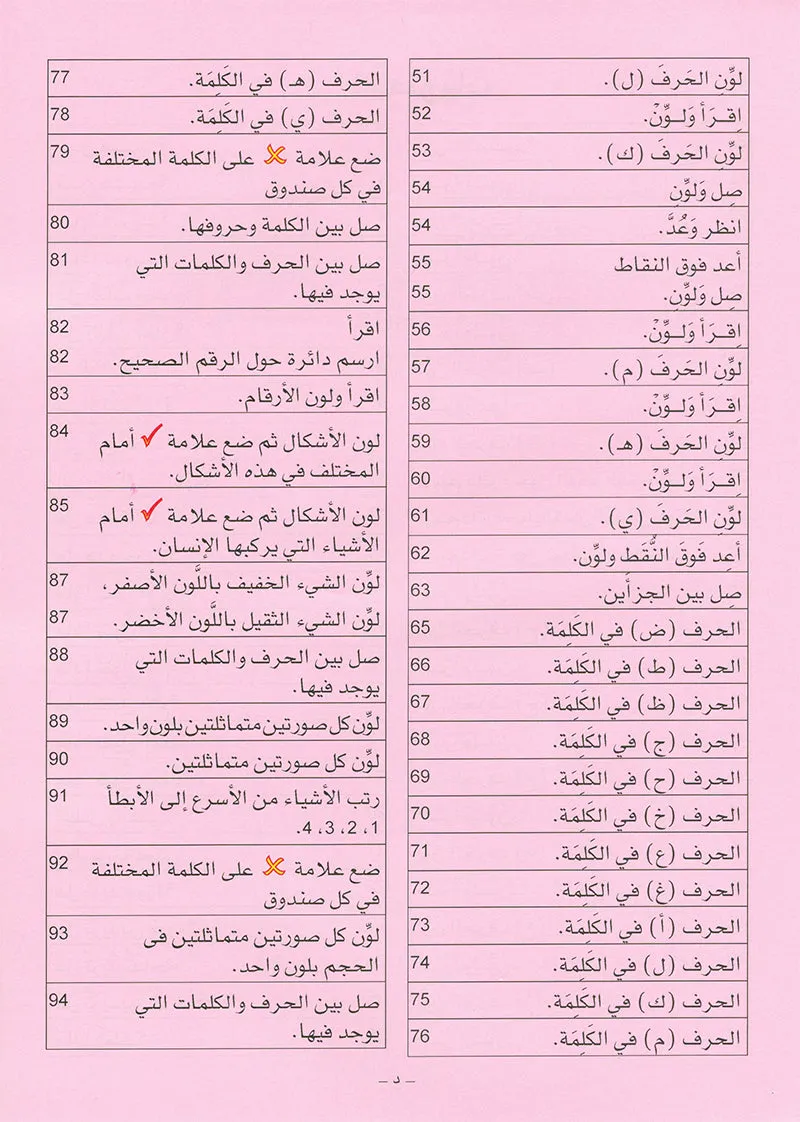 لوِّن الحَرفَ (ل). 51
اِقـرَأ وَلـوِّنْ. 52
لوِّن الحَرفَ (ك). 53
صِل وَلوِّنِ 54
انظر وَعُدَّ. 54
أعد فوق النقاط 55
صِل وَلوِّنِ. 55
اِقـرَأ وَلـوِّنْ. 56
لوِّن الحَرفَ (م). 57
اِقـرَأ وَلـوِّنْ. 58
لوِّن الحَرفَ (هـ). 59
اِقـرَأ وَلـوِّنْ. 60
لوِّن الحَرفَ (ي). 61
أعِد فَوقَ النُّقَط ولوِّن. 62
صِل بين الجزأين. 63
الحرف (ض) في الكَلِمَة. 65
الحرف (ط) في الكَلِمَة. 66
الحرف (ظ) في الكَلِمَة. 67
الحرف (ج) في الكَلِمَة. 68
الحرف (ح) في الكَلِمَة. 69
الحرف (خ) في الكَلِمَة. 70
الحرف (ع) في الكَلِمَة. 71
الحرف (غ) في الكَلِمَة. 72
الحرف (أ) في الكَلِمَة. 73
الحرف (ل) في الكَلِمَة. 74
الحرف (ك) في الكَلِمَة. 75
الحرف (م) في الكَلِمَة. 76
الحرف (هـ) في الكَلِمَة. 77
الحرف (ي) في الكَلِمَة. 78
ضع علامة ✗ على الكلمة المختلفة 79
في كل صندوق
صل بين الكلمة وحروفها. 80
صل بين الحرف والكلمات التي 81
يوجد فيها.
اقرأ 82
ارسم دائرة حول الرقم الصحيح. 82
اقرأ ولون الأرقام. 83
لون الأشكال ثم ضع علامة ✓ أمام 84
المختلف في هذه الأشكال.
لون الأشكال ثم ضع علامة ✓ أمام 85
الأشياء التي يركبها الإنسان.
لوِّن الشيء الخفيف باللَّون الأصفر، 87
لوِّن الشيء الثقيل باللَّون الأخضر. 87
صل بين الحرف والكلمات التي 88
يوجد فيها.
لوِّن كل صورتين متماثلتين بلون واحد. 89
لوِّن كل صورتين متماثلتين. 90
رتب الأشياء من الأسرع إلى الأبطأ 91
1، 2، 3، 4.
ضع علامة ✗ على الكلمة المختلفة 92
في كل صندوق
لوِّن كل صورتين متماثلتين فى 93
الحجم بلون واحد.
صل بين الحرف والكلمات التي 94
يوجد فيها.
– د –